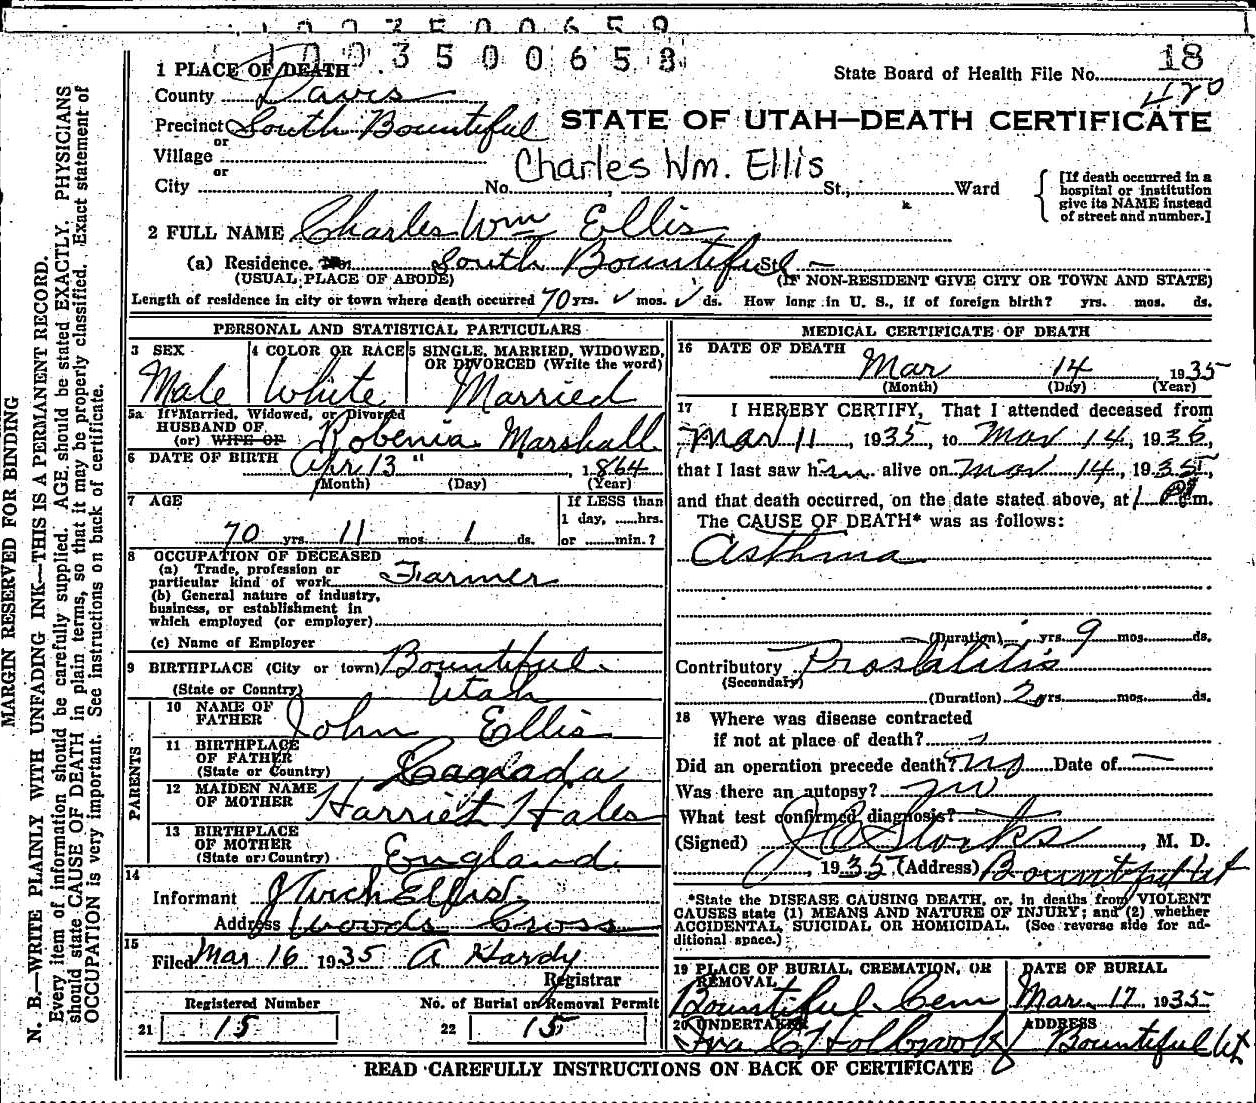 1003500659
1003500658
18
State Board of Health File No.
420
1 PLACE OF DEATH
County Davis
Precinct South Bountiful
or
Village
or
City No. St., Ward
STATE OF UTAH—DEATH CERTIFICATE
Charles Wm. Ellis
[If death occurred in a
hospital or institution
give its NAME instead
of street and number.]
2 FULL NAME Charles Wm Ellis
(a) Residence. No. South Bountiful St. —
(USUAL PLACE OF ABODE) (IF NON-RESIDENT GIVE CITY OR TOWN AND STATE)
Length of residence in city or town where death occurred 70 yrs. ✓ mos. ✓ ds. How long in U. S., if of foreign birth? yrs. mos. ds.
PERSONAL AND STATISTICAL PARTICULARS
3 SEX
Male
4 COLOR OR RACE
White
5 SINGLE, MARRIED, WIDOWED,
OR DIVORCED (Write the word)
Married
5a If Married, Widowed, or Divorced
HUSBAND OF
(or) WIFE OF Robenia Marshall
6 DATE OF BIRTH Apr 13 " 1864
(Month) (Day) (Year)
7 AGE
70 yrs. 11 mos. 1 ds.
If LESS than
1 day, ......hrs.
or ......min.?
8 OCCUPATION OF DECEASED
(a) Trade, profession or
particular kind of work Farmer
(b) General nature of industry,
business, or establishment in
which employed (or employer)
(c) Name of Employer
9 BIRTHPLACE (City or town) Bountiful
(State or Country) Utah
PARENTS
10 NAME OF
FATHER John Ellis
11 BIRTHPLACE
OF FATHER
(State or Country) Canada
12 MAIDEN NAME
OF MOTHER Harriet Hales
13 BIRTHPLACE
OF MOTHER
(State or Country) England
14
Informant Ellis
Address Woods Cross
15
Filed Mar 16 1935 A Hardy
Registrar
Registered Number
21 15
No. of Burial or Removal Permit
22 15
MEDICAL CERTIFICATE OF DEATH
16 DATE OF DEATH
Mar 14 1935
(Month) (Day) (Year)
17 I HEREBY CERTIFY, That I attended deceased from
Mar 11, 1935, to Mar 14, 1935,
that I last saw him alive on Mar 14, 1935,
and that death occurred, on the date stated above, at 1 P.m.
The CAUSE OF DEATH* was as follows:
Asthma
(Duration) yrs. 9 mos. ds.
Contributory Prostatitis
(Secondary)
(Duration) 2 yrs. mos. ds.
18 Where was disease contracted
if not at place of death?
Did an operation precede death? no Date of —
Was there an autopsy? no
What test confirmed diagnosis?
(Signed) Stocks, M. D.
, 1935 (Address) Bountiful Ut
*State the DISEASE CAUSING DEATH, or, in deaths from VIOLENT
CAUSES state (1) MEANS AND NATURE OF INJURY; and (2) whether
ACCIDENTAL, SUICIDAL OR HOMICIDAL. (See reverse side for ad-
ditional space.)
19 PLACE OF BURIAL, CREMATION, OR
REMOVAL
Bountiful Cem
DATE OF BURIAL
Mar. 17 1935
20 UNDERTAKER
Iva C Holbrook
ADDRESS
Bountiful Ut
READ CAREFULLY INSTRUCTIONS ON BACK OF CERTIFICATE
MARGIN RESERVED FOR BINDING
N. B.—WRITE PLAINLY WITH UNFADING INK—THIS IS A PERMANENT RECORD.
Every item of information should be carefully supplied. AGE should be stated EXACTLY. PHYSICIANS
should state CAUSE OF DEATH in plain terms, so that it may be properly classified. Exact statement of
OCCUPATION is very important. See instructions on back of certificate.